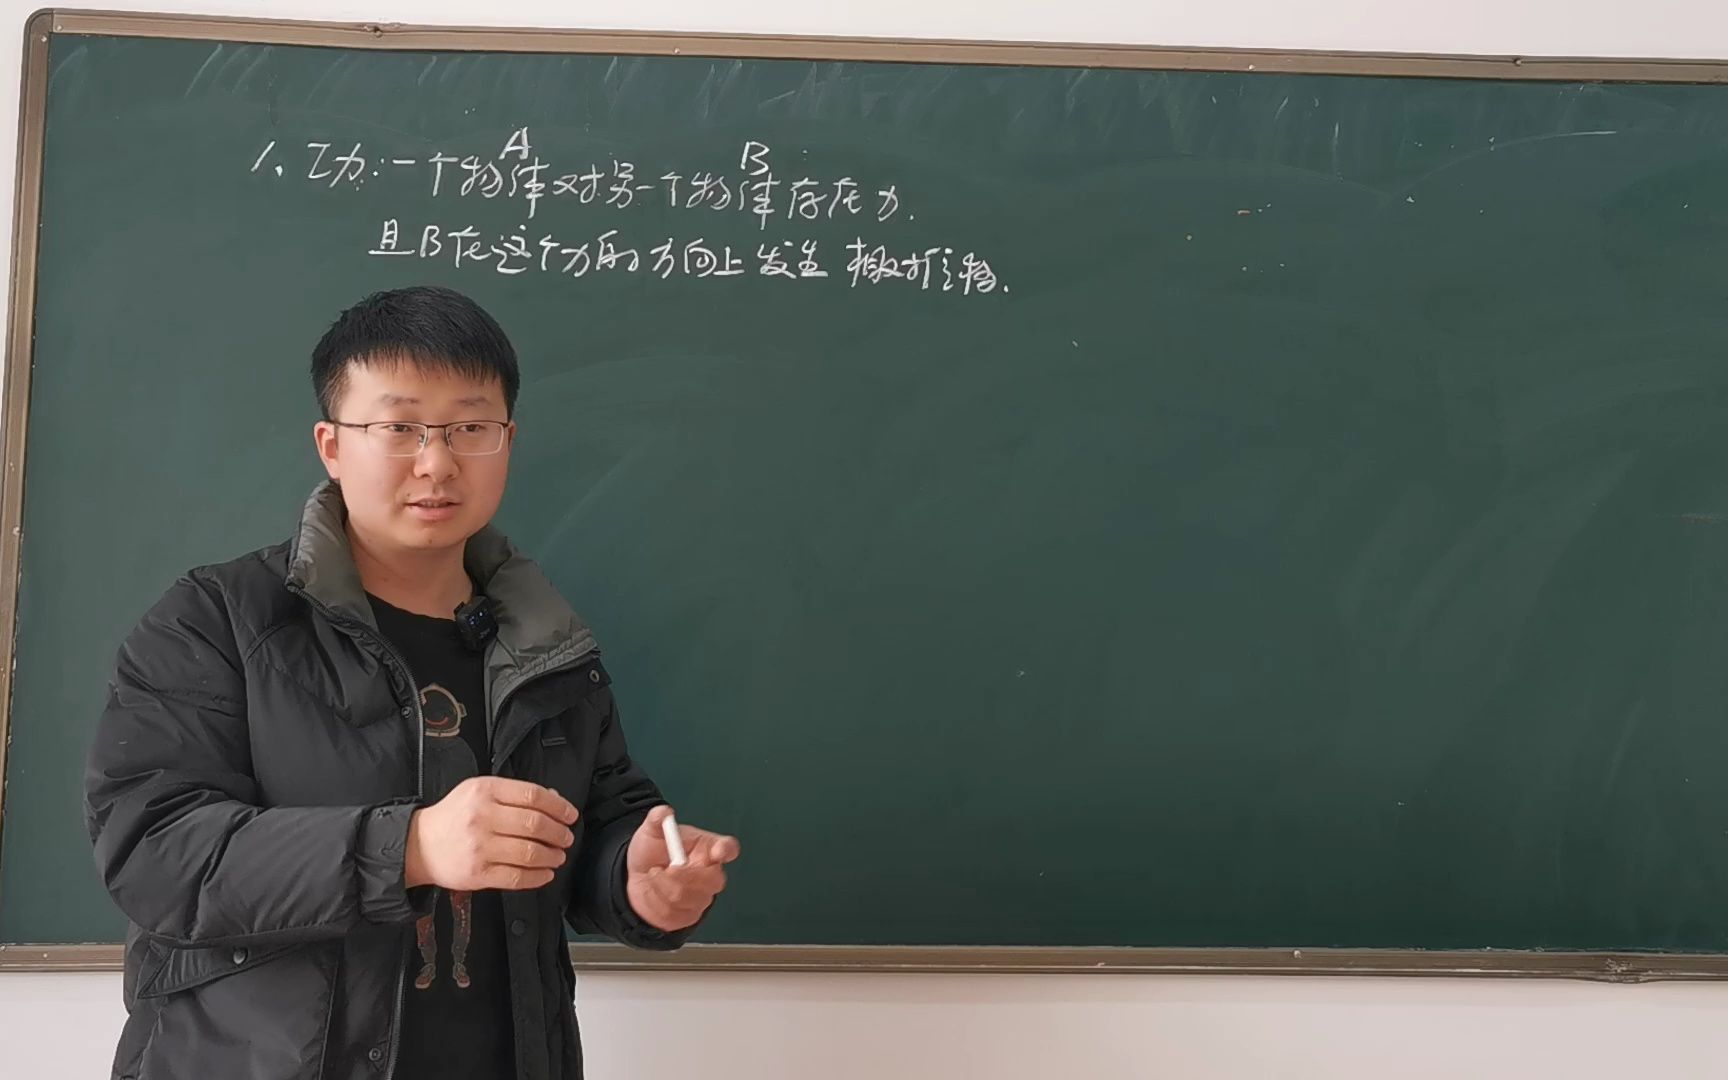 A B
1、功:一个物体对另一个物体存在力.
且B在这个力的方向上发生